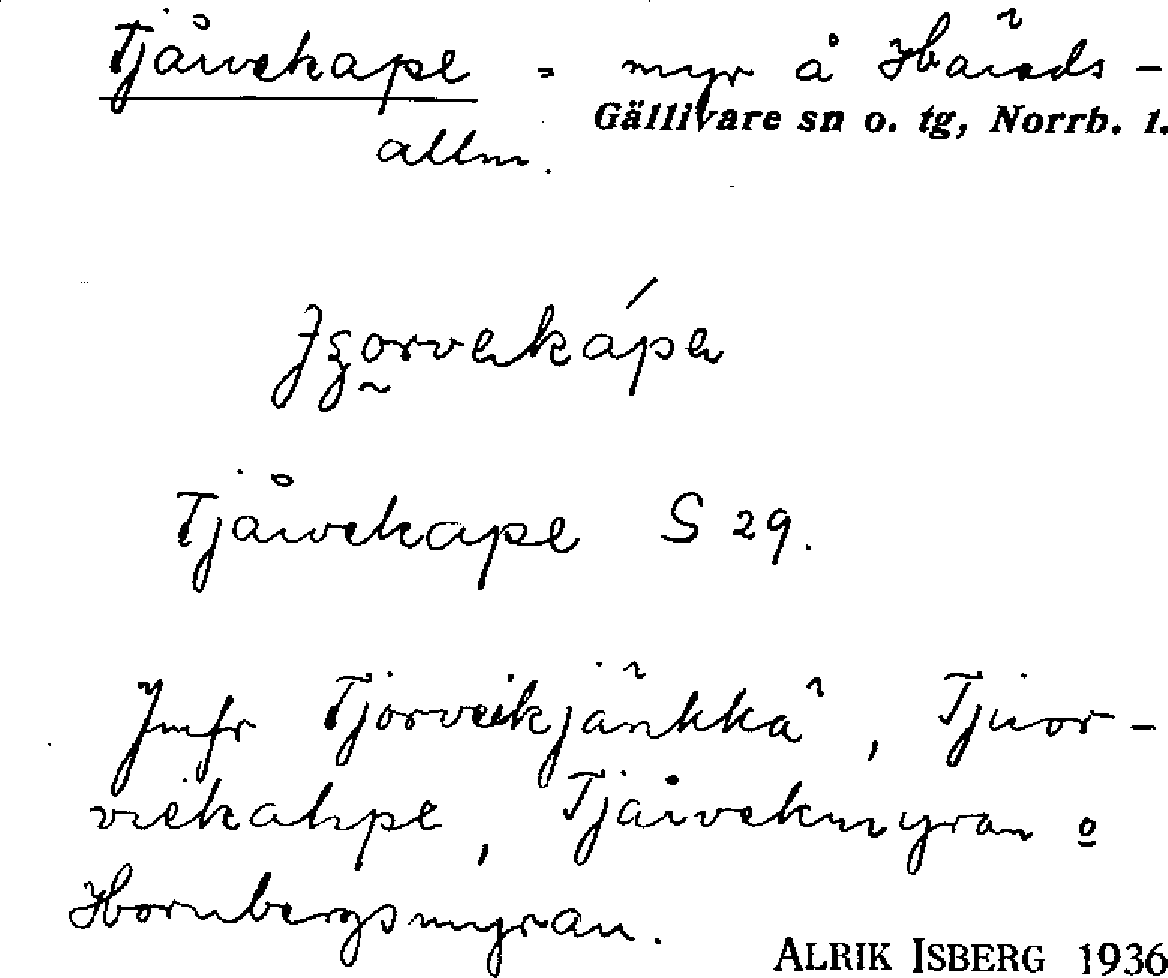 Tjårvekape = myr å Härads-
Gällivare sn o. tg, Norrb. l.
allm.
Tjårvekape S 29.
Jmfr Tjorvekjänkkä, Tjuor-
viekahpe, Tjårvekmyran o
Hornbergsmyran.
ALRIK ISBERG 1936